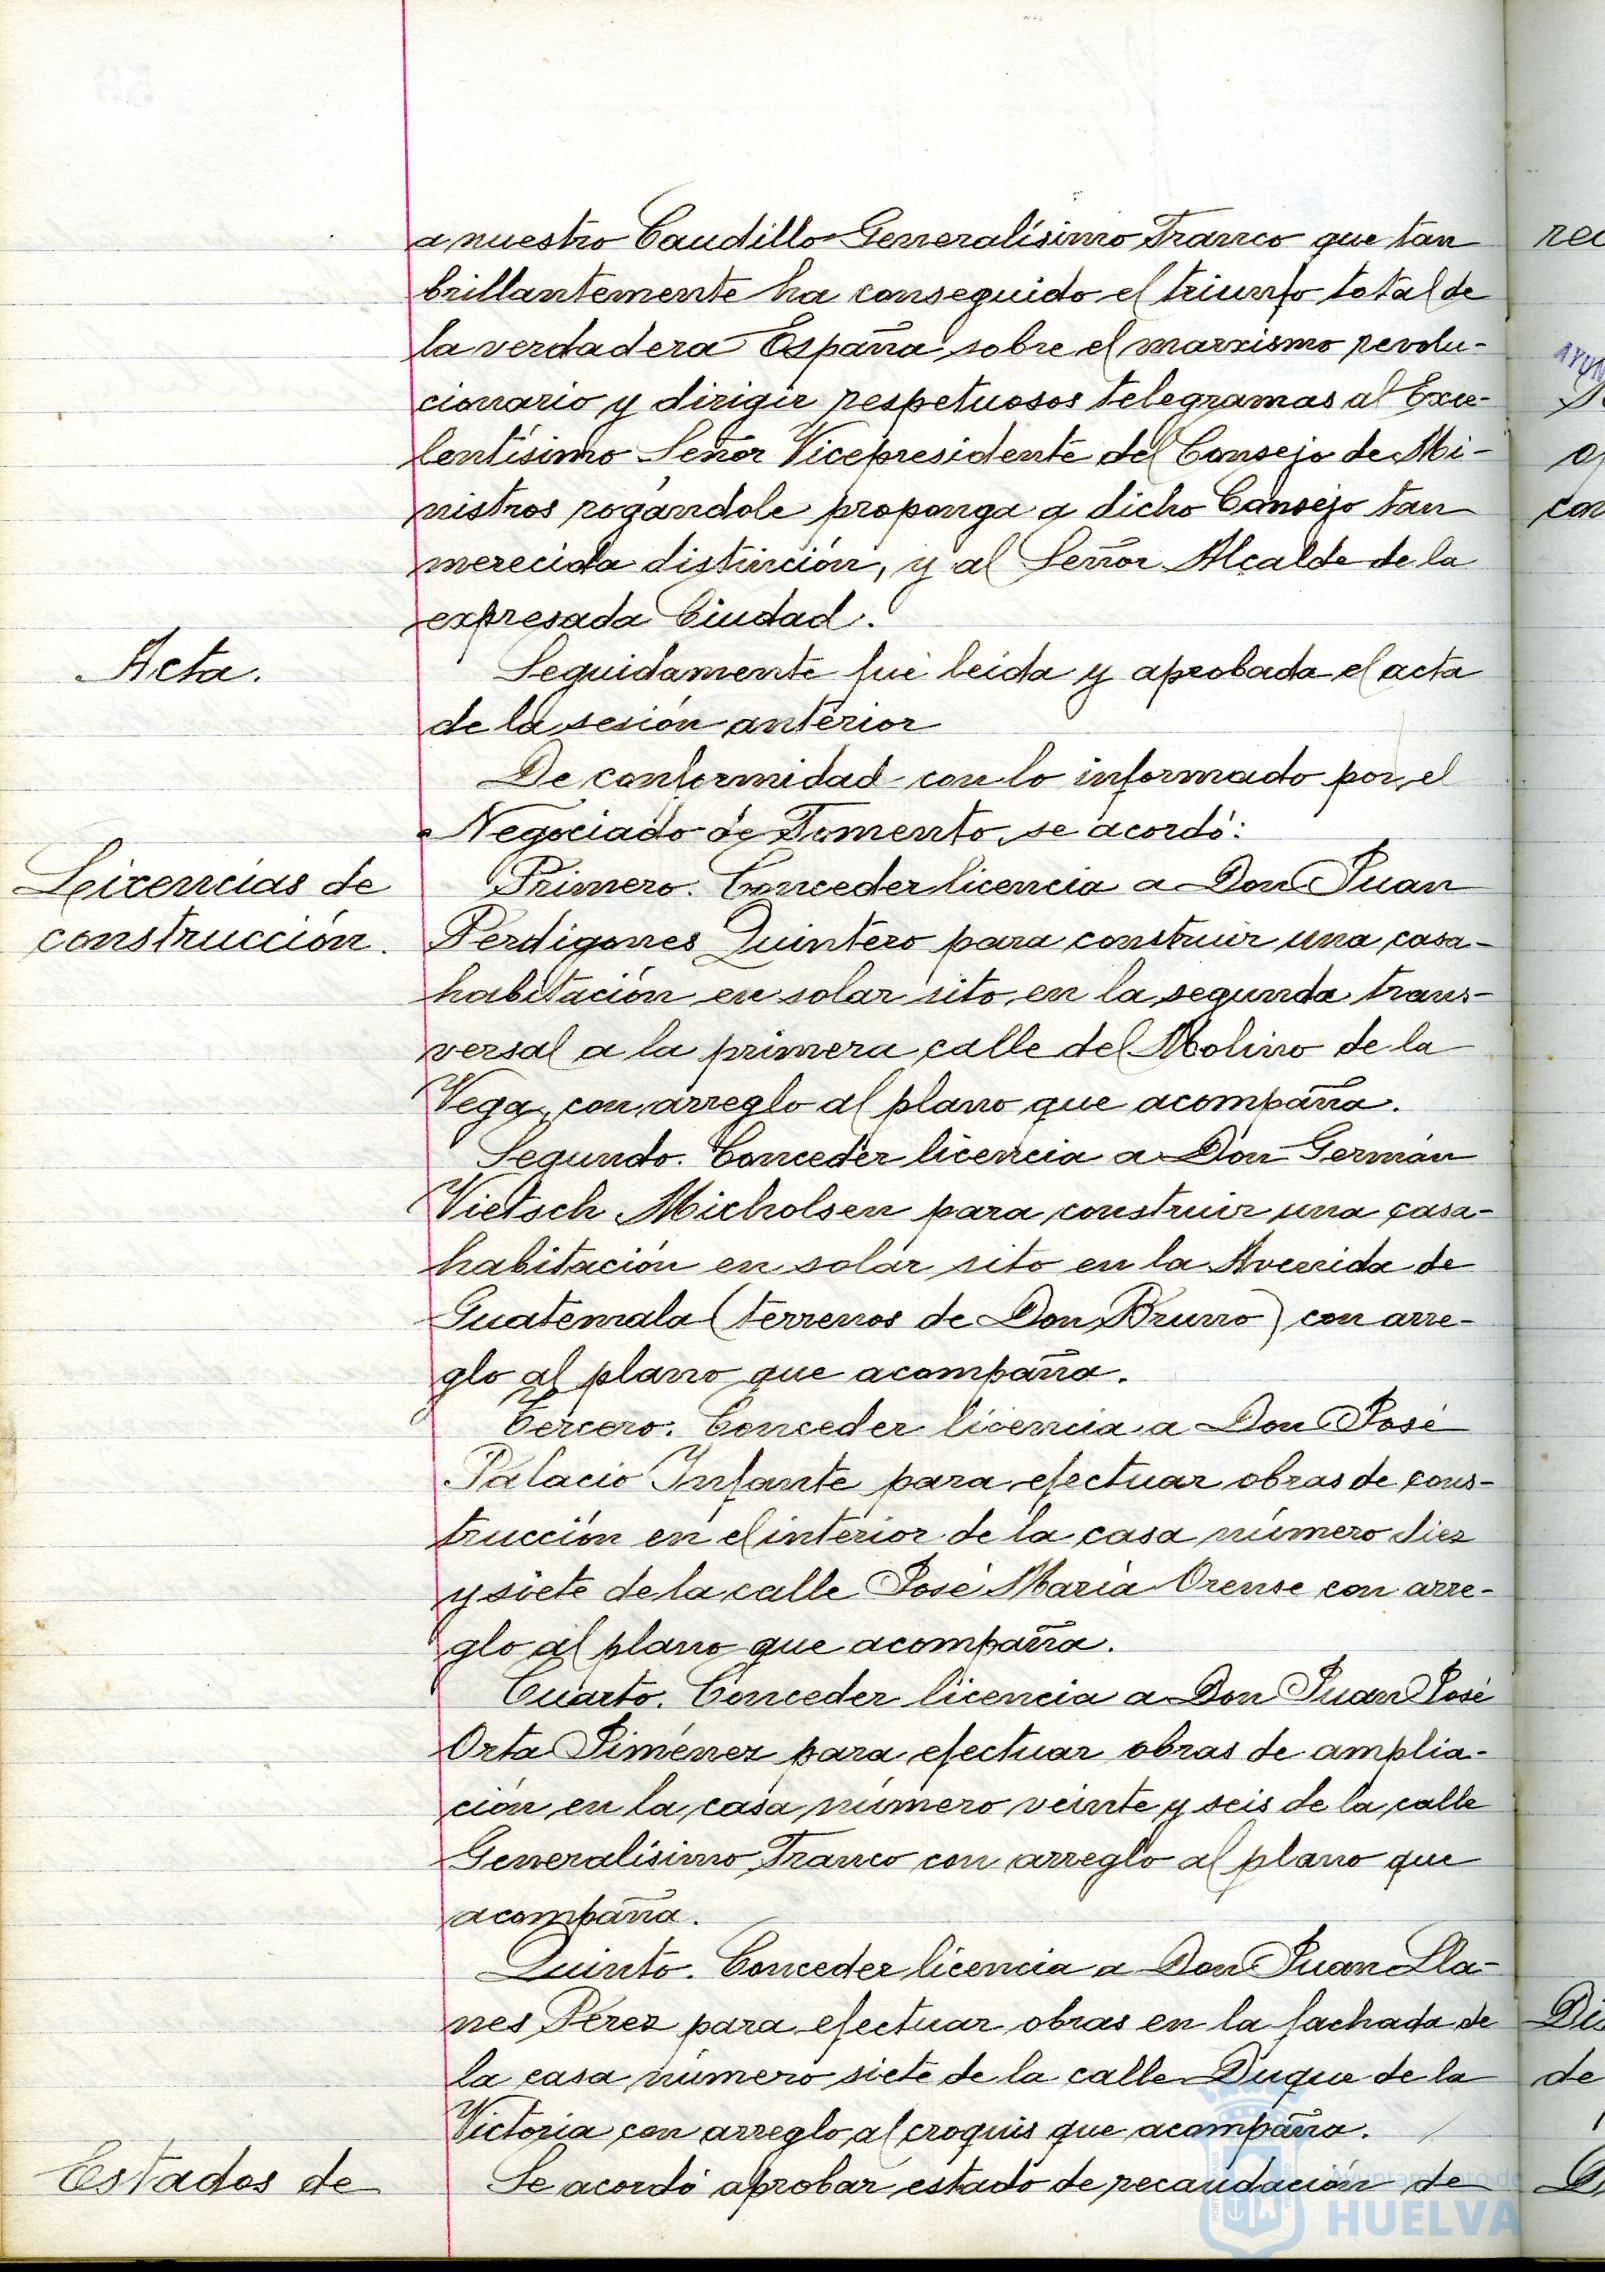 a nuestro Caudillo Generalísimo Franco que tan
brillantemente ha conseguido el triunfo total de
la verdadera España sobre el marxismo revolu-
cionario y dirigir respetuosos telegramas al Exce-
lentísimo Señor Vicepresidente del Consejo de Mi-
nistros rogándole proponga a dicho Consejo tan
merecida distinción, y al Señor Alcalde de la
expresada Ciudad.
Acta.
Seguidamente fué leída y aprobada el acta
de la sesión anterior
De conformidad con lo informado por el
Negociado de Fomento, se acordó:
Licencias de
construcción.
Primero. Conceder licencia a Don Juan
Perdigones Quintero para construir una casa-
habitación en solar sito en la segunda trans-
versal a la primera calle del Molino de la
Vega, con arreglo al plano que acompaña.
Segundo. Conceder licencia a Don Germán
Vietsch Micholsen para construir una casa-
habitación en solar sito en la Avenida de
Guatemala (terrenos de Don Bruno) con arre-
glo al plano que acompaña.
Tercero. Conceder licencia a Don José
Palacio Infante para efectuar obras de cons-
trucción en el interior de la casa número diez
y siete de la calle José María Orense con arre-
glo al plano que acompaña.
Cuarto. Conceder licencia a Don Juan José
Orta Jiménez para efectuar obras de amplia-
ción en la casa número veinte y seis de la calle
Generalísimo Franco con arreglo al plano que
acompaña.
Quinto. Conceder licencia a Don Juan Lla-
nes Pérez para efectuar obras en la fachada de
la casa número siete de la calle Duque de la
Victoria con arreglo al croquis que acompaña.
Estados de
Se acordó aprobar estado de recaudación de
Ayuntamiento de
HUELVA